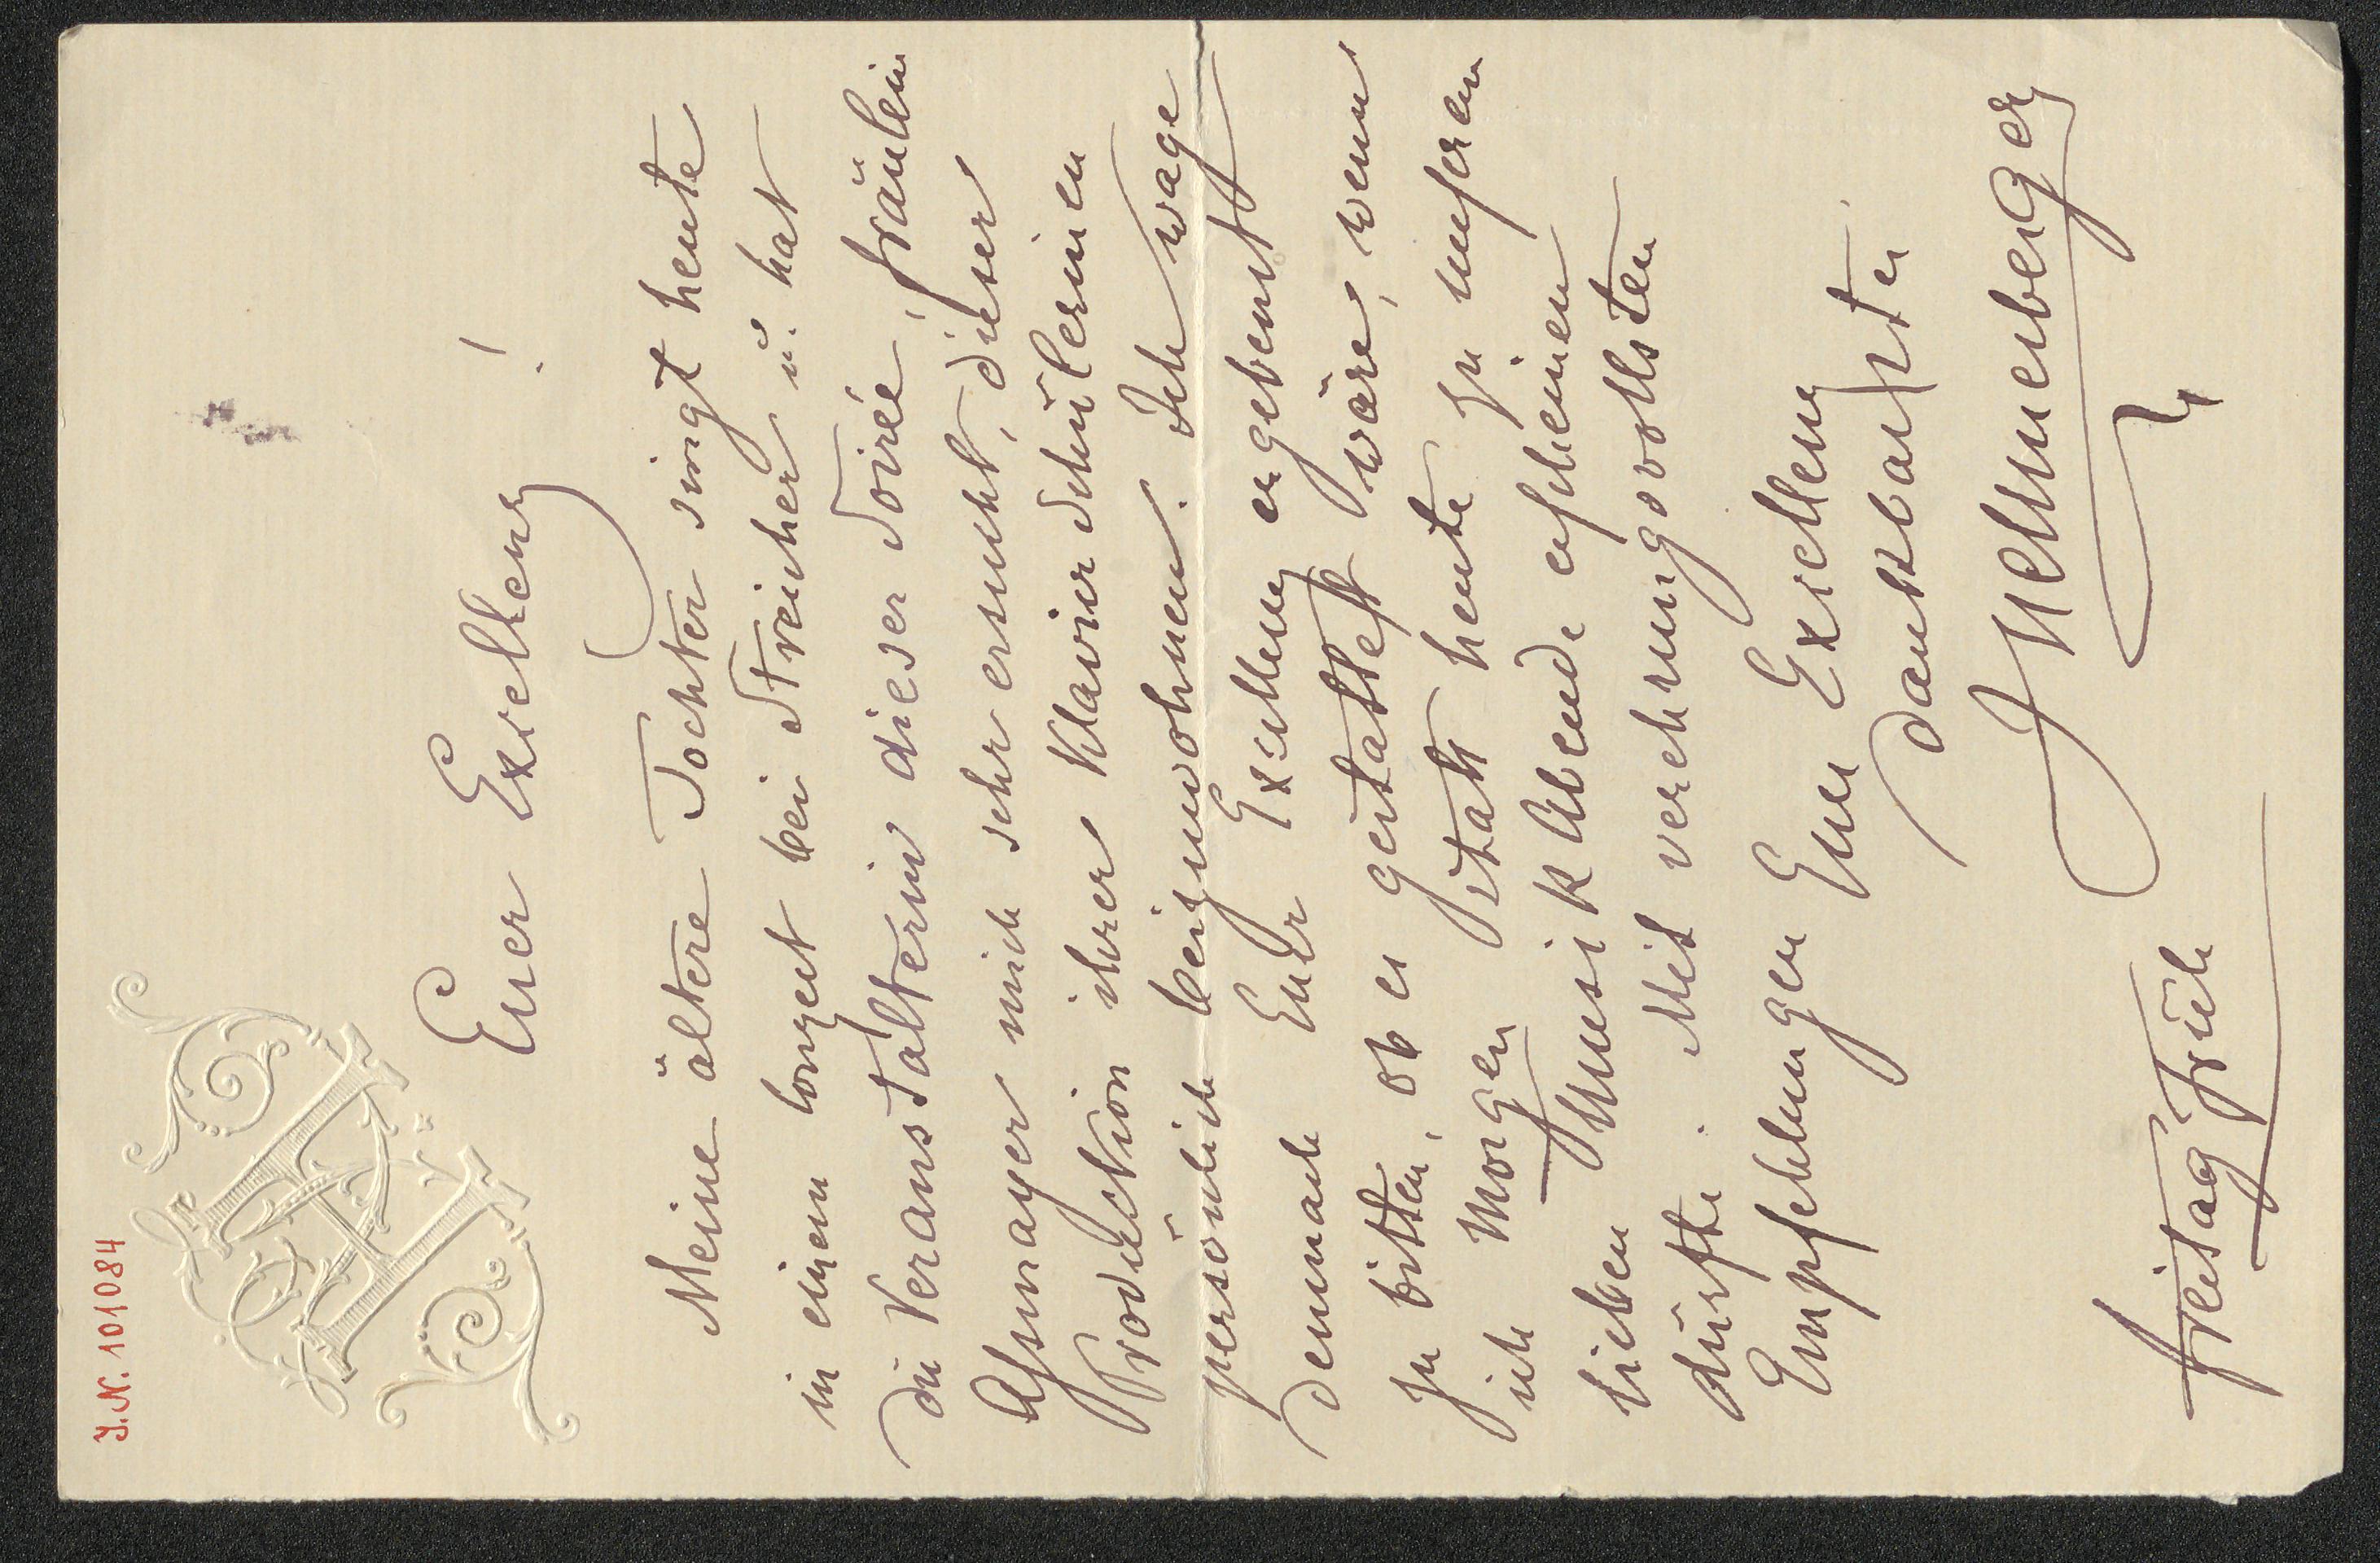 J.N. 101084
Euer Excellenz!
Meine ältere Tochter singt heute
in einem Conzert bei Streicher u. hat
die Veranstalterin dieser Soirée, Fräulein
Assmayer mich sehr ersucht, dieser
Production ihrer Klavier Schülerinen
persönlich beizuwohnen. Ich wage
demnach Euer Excellenz ergebenst
zu bitten, ob es gestattet wäre, wenn
ich Morgen statt heute zu unseren
lieben Musik Abende erscheinen
dürfte. Mit verehrungsvollsten
Empfehlungen Euer Excellenz
dankbarster
J Hellmesberger
Freitag früh